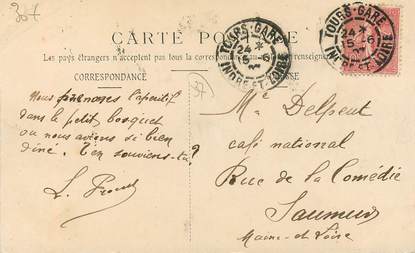 30f
CARTE POSTALE
Les pays étrangers n'acceptent pas tous la correspondance
CORRESPONDANCE
TOURS-GARE
24 *
15 -6
INDRE ET LOIRE
TOURS-GARE
24 *
15 -6
INDRE ET LOIRE
37
Nous prenons l'apéritif
dans le petit bosquet
où nous avions si bien
diné. T'en souviens-tu ?
L.
Mr Delpeut
café national
Rue de la Comédie
Saumur
Maine-et-Loire